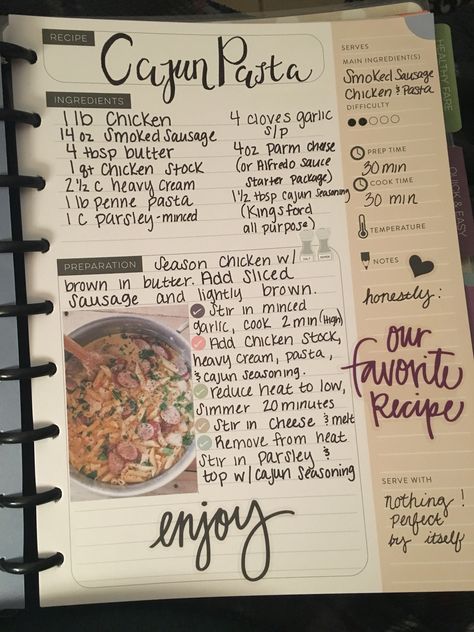 RECIPE
Cajun Pasta
INGREDIENTS
1 lb Chicken
14 oz Smoked Sausage
4 tbsp butter
1 qt Chicken Stock
2 1/2 c heavy Cream
1 lb penne pasta
1 C parsley-minced
4 cloves garlic
S/P
4oz Parm cheese
(or Alfredo Sauce
Starter package)
1 1/2 tbsp cajun seasoning
(Kingsford
all purpose)
SALT
PEPPER
PREPARATION
Season Chicken w/
brown in butter. Add Sliced
Sausage and lightly brown.
Stir in minced
garlic, cook 2 min (High)
Add Chicken Stock,
heavy Cream, pasta,
& cajun seasoning.
reduce heat to low,
Simmer 20 minutes
Stir in Cheese & melt
Remove from heat
Stir in Parsley &
top w/ Cajun Seasoning
enjoy
SERVES
MAIN INGREDIENT(S)
Smoked Sausage
Chicken & Pasta
DIFFICULTY
PREP TIME
30 min
COOK TIME
30 min
TEMPERATURE
NOTES
honestly:
our
favorite
Recipe
SERVE WITH
nothing!
perfect
by itself
HEALTHY FARE
QUICK & EASY